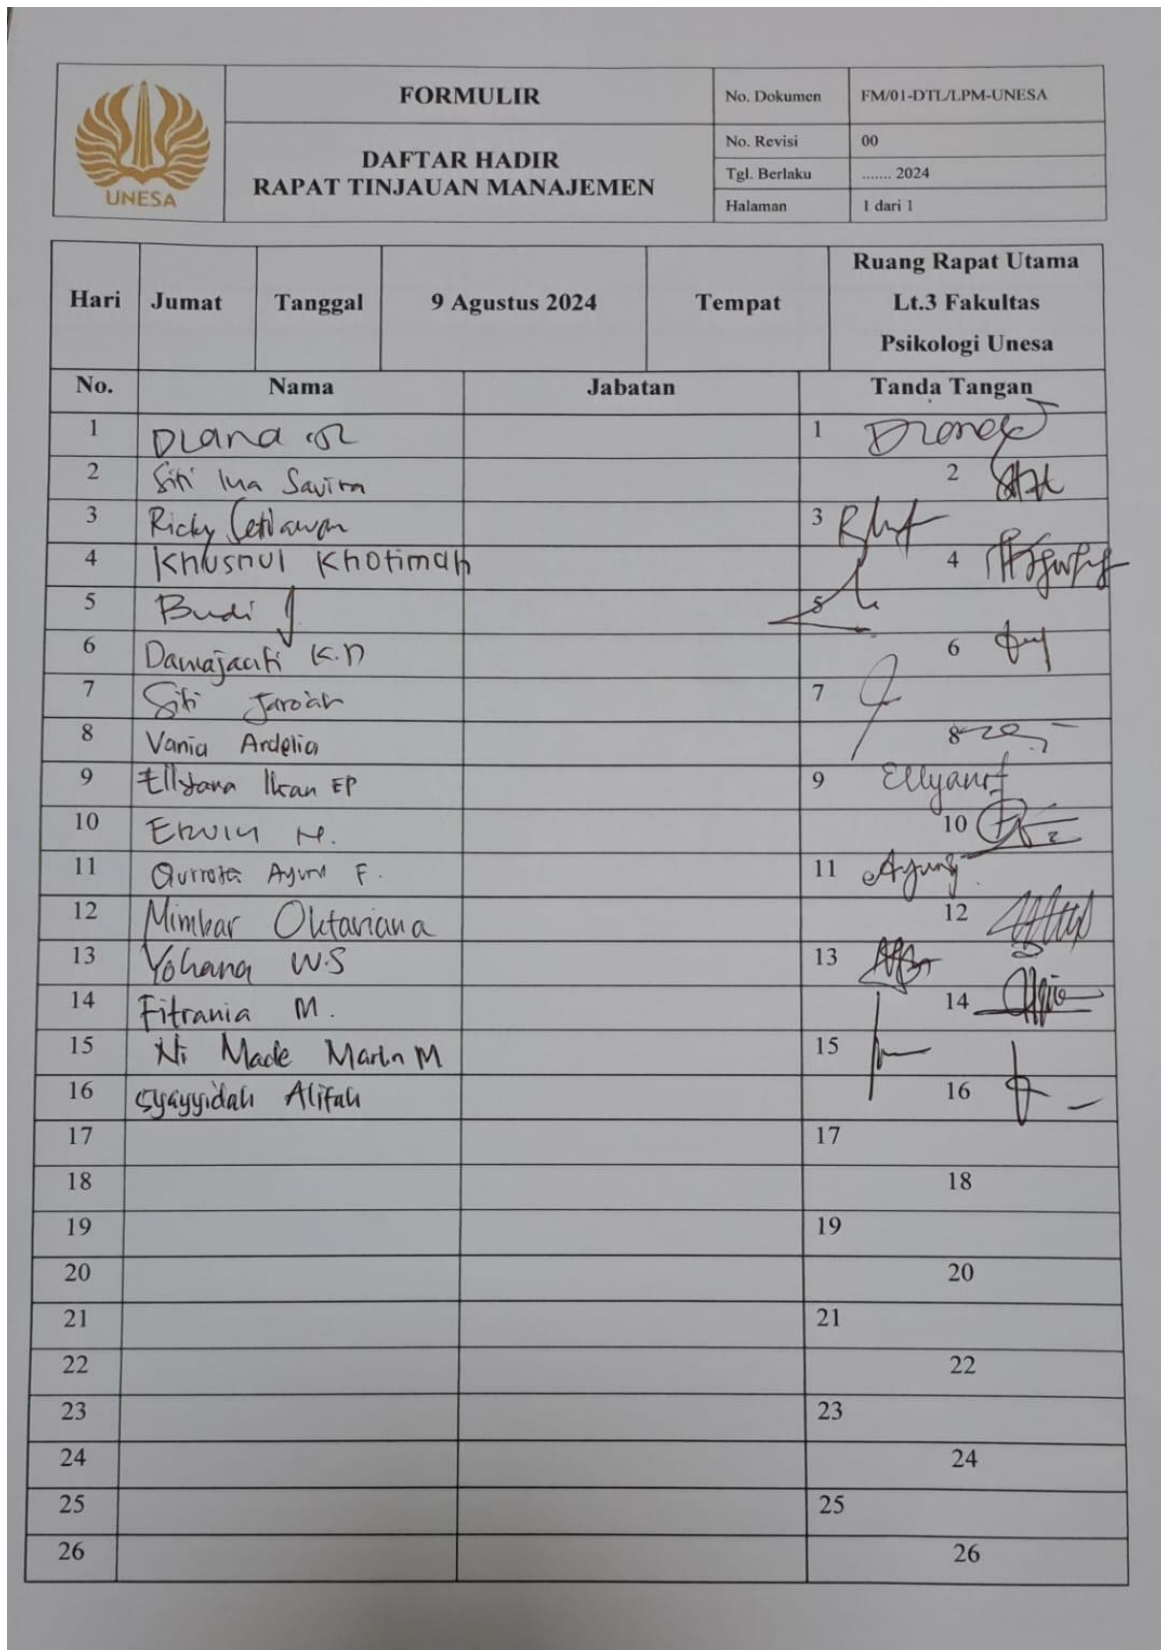 UNESA
FORMULIR
No. Dokumen FM/01-DTL/LPM-UNESA
DAFTAR HADIR
RAPAT TINJAUAN MANAJEMEN
No. Revisi 00
Tgl. Berlaku ....... 2024
Halaman 1 dari 1
Hari Jumat Tanggal 9 Agustus 2024 Tempat Ruang Rapat Utama
Lt.3 Fakultas
Psikologi Unesa
No. Nama Jabatan Tanda Tangan
1 Diana 1
2 Siti Ina Savira 2
3 Ricky Setiawan 3
4 Khusnul Khotimah 4
5 Budi 5
6 Damajanti K.D 6
7 Siti Jaro'ah 7
8 Vania Ardelia 8
9 Ellyana Ilsan EP 9 Ellyana
10 Erwin 10
11 Qurrota Ayuni F. 11
12 Mimbar Oktaviana 12
13 Yohana W.S 13
14 Fitrania M. 14
15 Ni Made Marlin M 15
16 Syayyidah Alifah 16
17 17
18 18
19 19
20 20
21 21
22 22
23 23
24 24
25 25
26 26